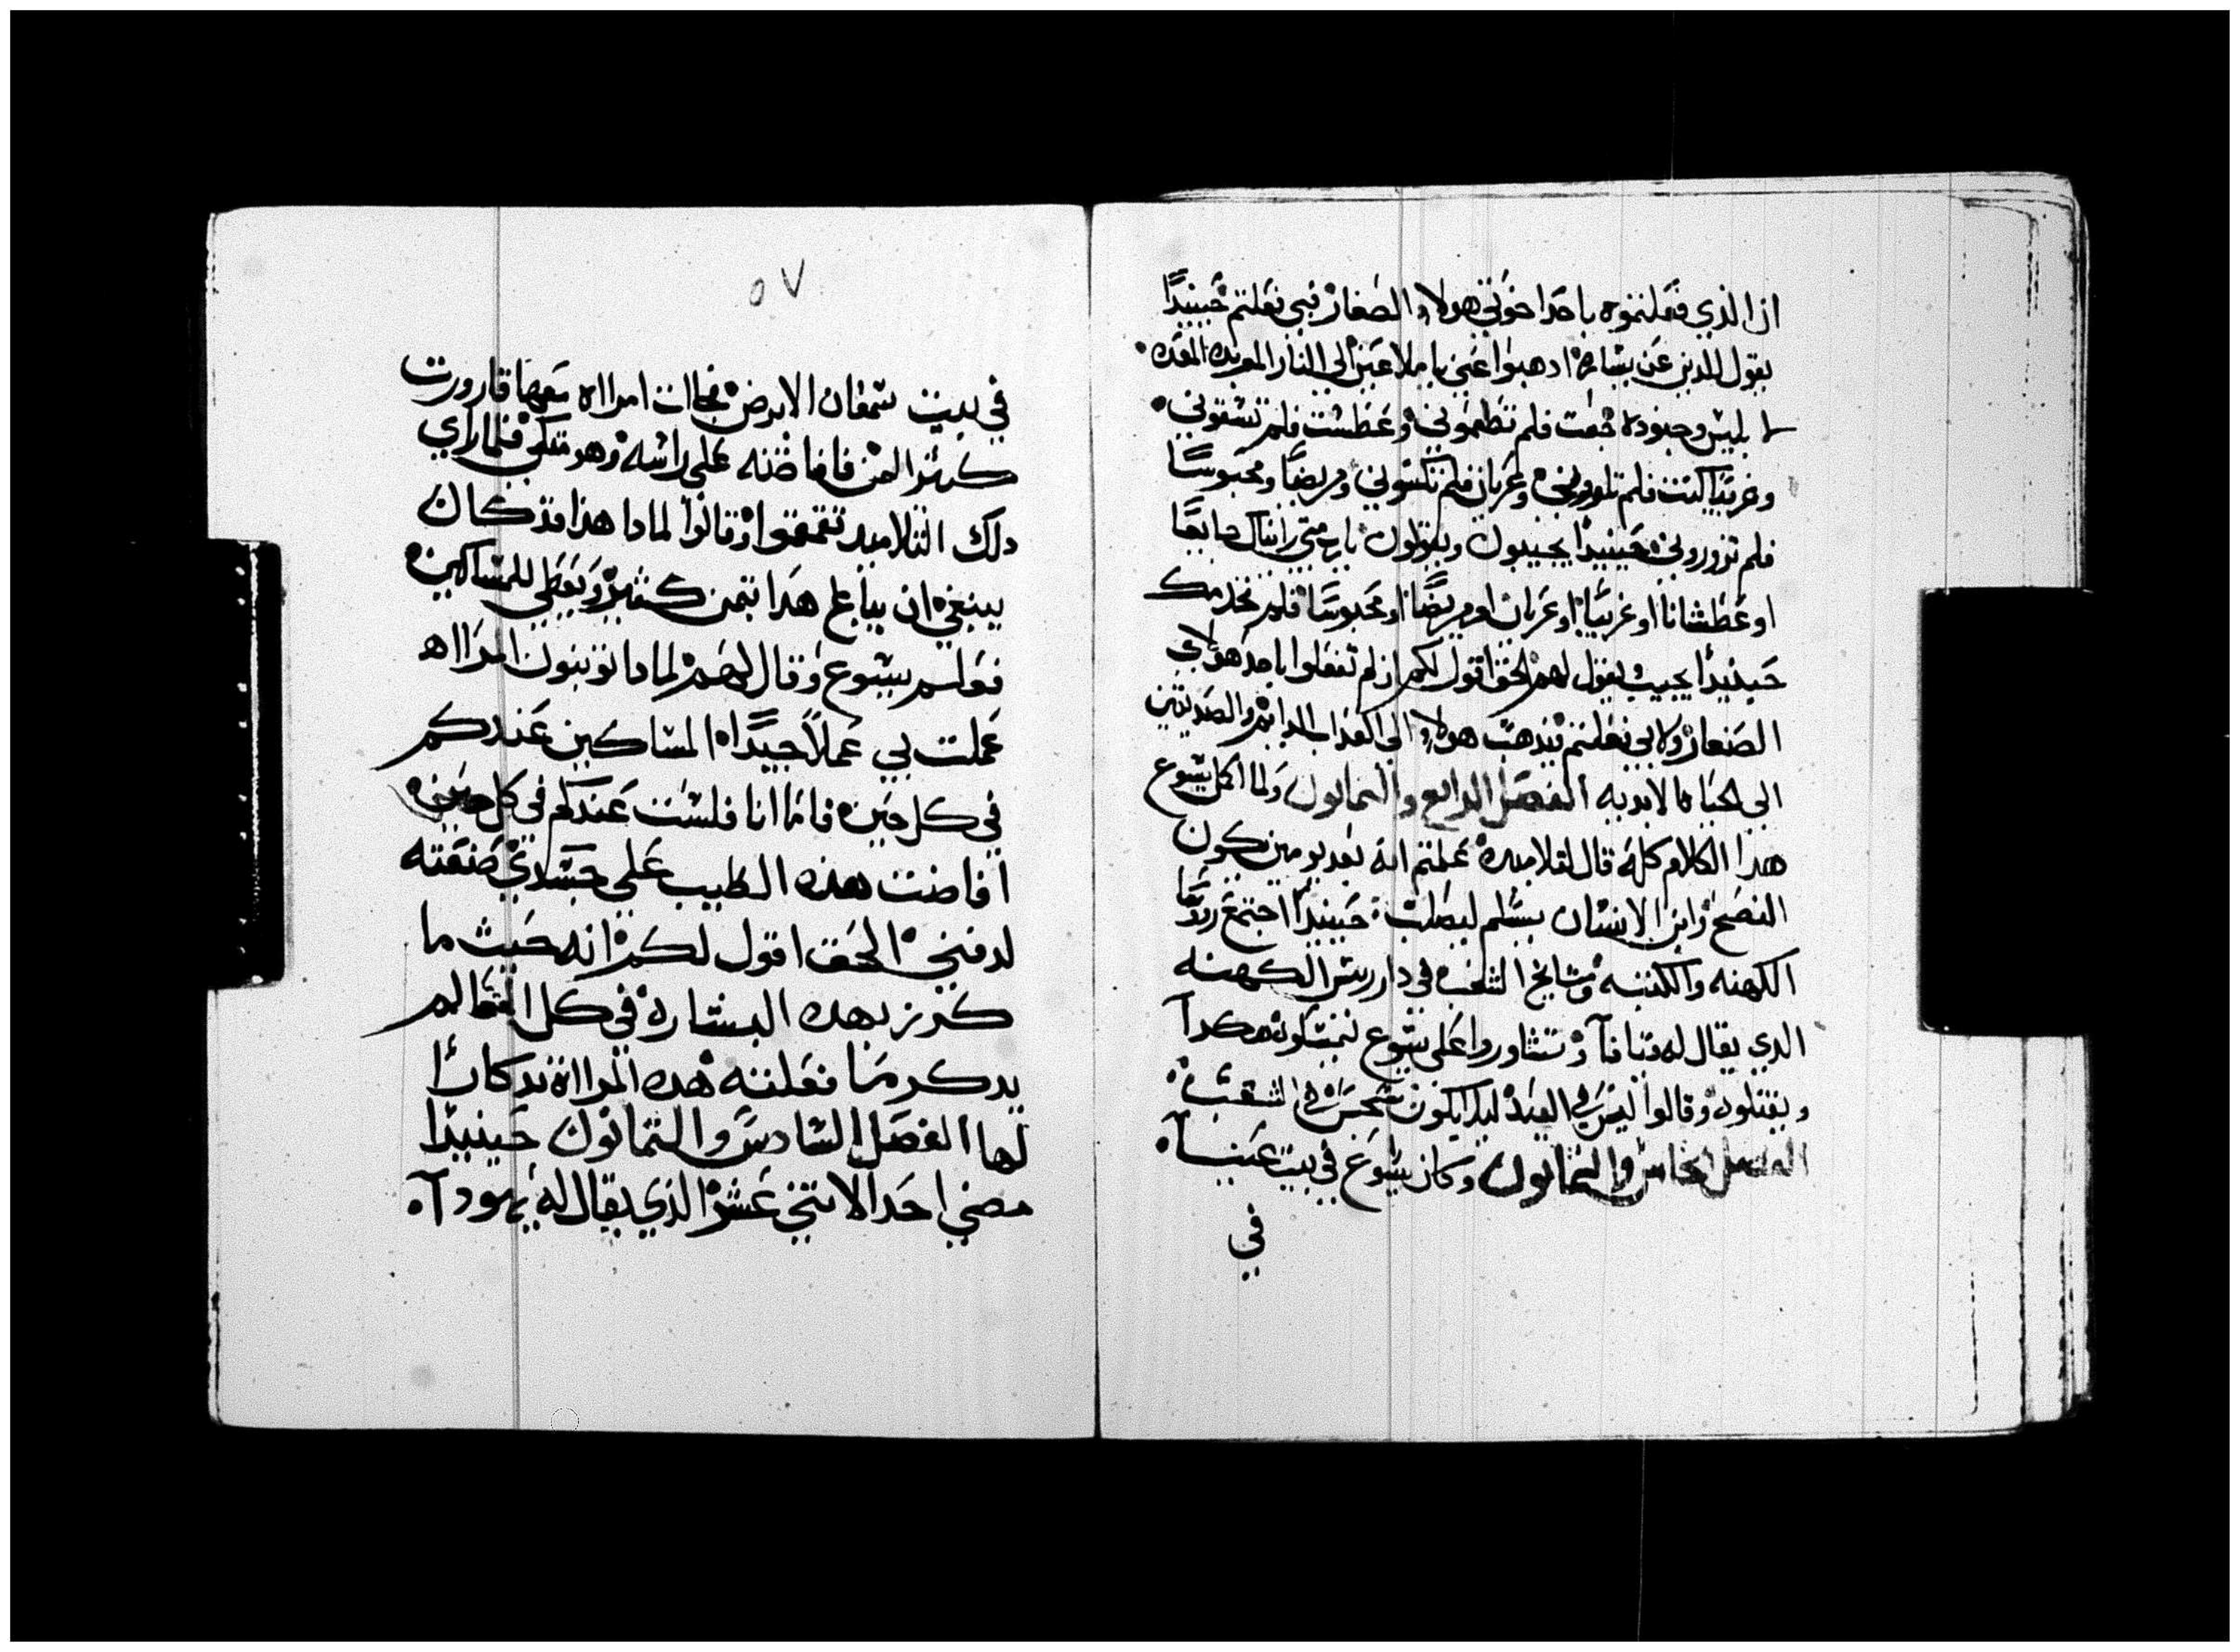 ان الذي فعلتموه باحد اخوتي هولاء الصغار فبي فعلتم حينيدًا
يقول للدين عن يساره ادهبوا عني يا ملاعين الى النار الموبده المعده
لابليس وجنوده جعت فلم تطعموني وعطشت فلم تسقوني
وغريبًا كنت فلم تاووني وعريان فلم تكسوني ومريضًا ومحبوسًا
فلم تزوروني حينيدًا يجيبون ويقولون يا رب متى رايناك جايعًا
او عطشانًا او غريبًا او عريان او مريضًا او محبوسًا فلم نخدمك
حينيدًا يجيب ويقول لهم الحق اقول لكم ان لم تفعلوا باحد هولاي
الصغار ولا بي فعلتم فيدهب هولاء الى العداب الدايم والصديقين
الى الحياه الابديه الفصل الرابع والتمانون ولما اكمل يسوع
هدا الكلام كله قال لتلاميده علمتم انه بعد يومين يكون
الفصح وابن الانسان يسلم ليصلب حينيدًا اجتمع روسا
الكهنه والكتبه ومشايخ الشعب في دار ريس الكهنه
الدي يقال له قيافآ وتشاوروا على يسوع ليمسكوه هكدآ
ويقتلوه وقالوا ليس في العيد ليلا يكون سجس في الشعب
الفصل الخامس والتمانون وكان يسوع في بيت عنيآ
في
٥٧
في بيت سمعان الابرص فجاات امرااه معها قارورت
كتير التمن فافاضته على راسه وهو متكي فلما راي
دلك التلاميد تقمقموا وقالوا لمادا هذا قد كان
ينبغي ان يباع هدا بتمن كتير ويعطي للمساكين
فعلم يسوع وقال لهم لمادا توتبون امرااه
عملت بي عملًا جيدًا المساكين عندكم
في كل حين فاما انا فلست عندكم في كل حين
افاضت هده الطيب على جسدي صنعته
لدفني الحق اقول لكم انه حيت ما
كرز بهده البشاره في كل العالم
يدكر ما فعلته هده المرااه تدكارًا
لها الفصل السادس والتمانون حينيدًا
مضي احد الاتني عشر الذي يقال له يهودآ